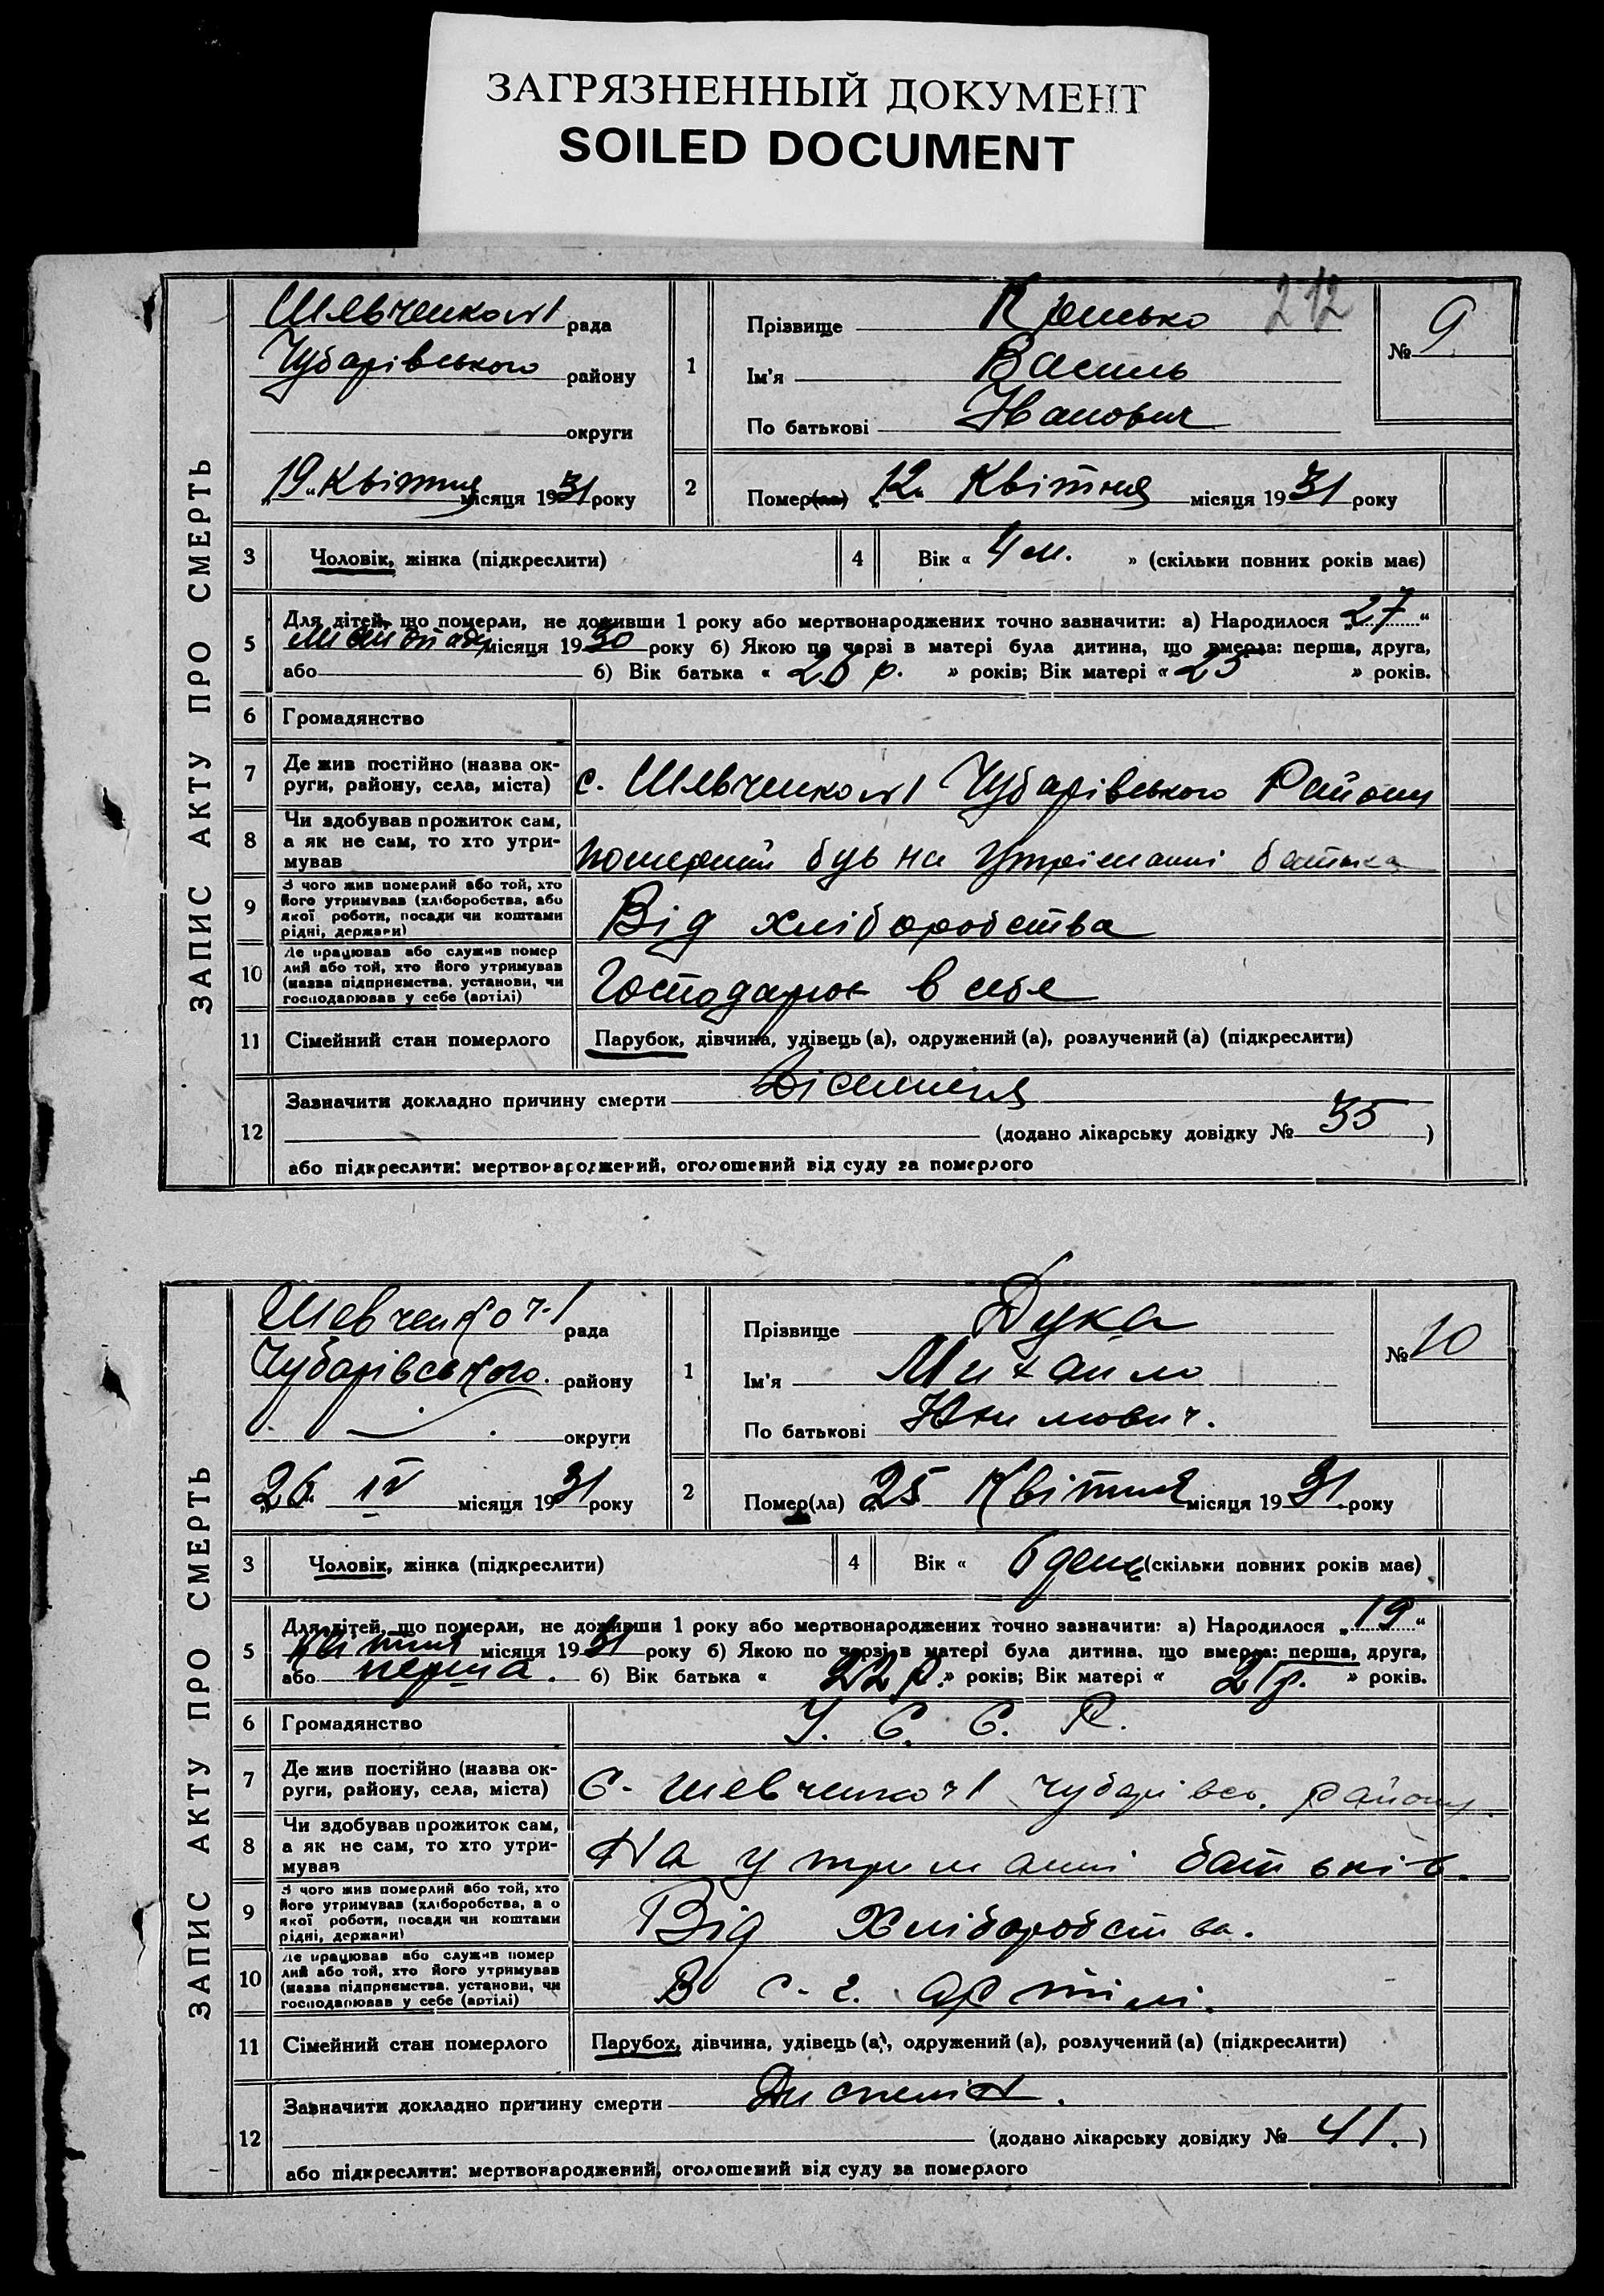 ЗАГРЯЗНЕННЫЙ ДОКУМЕНТ
SOILED DOCUMENT
212
ЗАПИС АКТУ ПРО СМЕРТЬ
Шевченко №1 рада
Чубарівського району
округи
„19“ Квітня місяця 1931 року
1
Прізвище
Ім'я Василь
По батькові Іванович
№ 9
2
Помер(ла) „12“ Квітня місяця 1931 року
3 Чоловік, жінка (підкреслити)
4 Вік « 4 м. » (скільки повних років має)
5 Для дітей, що померли, не доживши 1 року або мертвонароджених точно зазначити: а) Народилося „27“
Листопаду місяця 1930 року б) Якою по черзі в матері була дитина, що вмерла: перша, друга,
або б) Вік батька « 26 р. » років; Вік матері « 25 » років.
6 Громадянство
7 Де жив постійно (назва ок-
руги, району, села, міста) с. Шевченко №1 Чубарівського Району
8 Чи здобував прожиток сам,
а як не сам, то хто утри-
мував померший був на утріманні батька
9 З чого жив померлий або той, хто
його утримував (хліборобства, або
якої роботи, посади чи коштами
рідні, держави) Від хліборобства
10 Де працював або служив помер
лий або той, хто його утримував
(назва підприємства, установи, чи
господарював у себе (артілі) Господарює в себе
11 Сімейний стан померлого Парубок, дівчина, удівець (а), одружений (а), розлучений (а) (підкреслити)
12 Зазначити докладно причину смерти
(додано лікарську довідку № 35)
або підкреслити: мертвонароджений, оголошений від суду за померлого
ЗАПИС АКТУ ПРО СМЕРТЬ
Шевченко №1 рада
Чубарівського. району
округи
„26“ IV місяця 1931 року
1
Прізвище Дука
Ім'я Михайло
По батькові
№ 10
2
Помер(ла) „25 Квітня місяця 1931. року
3 Чоловік, жінка (підкреслити)
4 Вік « 6 день (скільки повних років має)
5 Для дітей, що померли, не доживши 1 року або мертвонароджених точно зазначити: а) Народилося „19“
Квітня місяця 1931 року б) Якою по черзі в матері була дитина, що вмерла: перша, друга,
або перша. б) Вік батька « 22 р. » років; Вік матері « 21 р. » років.
6 Громадянство У. С. С. Р.
7 Де жив постійно (назва ок-
руги, району, села, міста) С. Шевченко №1 Чубарівсь. району.
8 Чи здобував прожиток сам,
а як не сам, то хто утри-
мував На утриманні батьків.
9 З чого жив померлий або той, хто
його утримував (хліборобства, а о
якої роботи, посади чи коштами
рідні, держави) Від Хліборобства.
10 Де працював або служив помер
лий або той, хто його утримував
(назва підприємства, установи, чи
господарював у себе (артілі) В с.-г. артілі.
11 Сімейний стан померлого Парубок, дівчина, удівець (а), одружений (а), розлучений (а) (підкреслити)
12 Зазначити докладно причину смерти Диспепсія.
(додано лікарську довідку № 41.)
або підкреслити: мертвонароджений, оголошений від суду за померлого